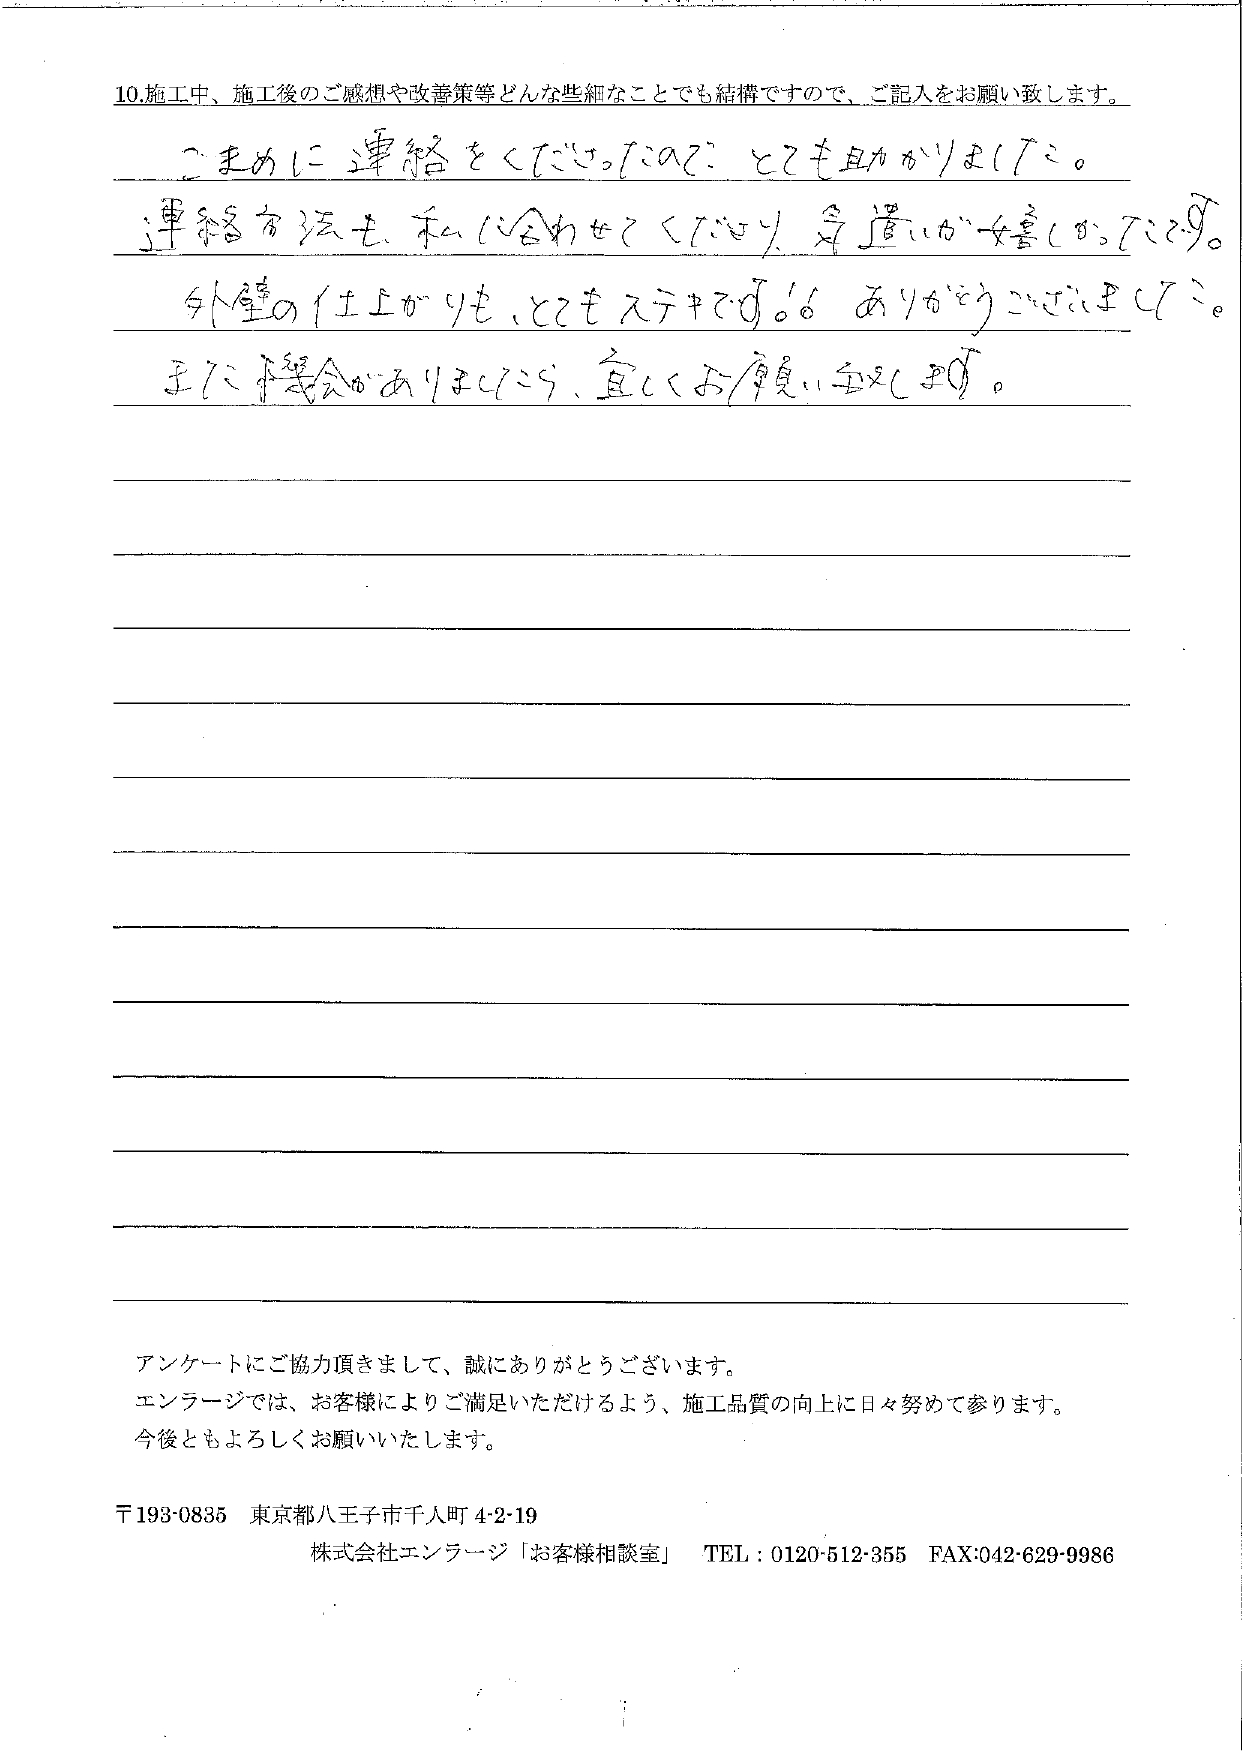 10.施工中、施工後のご感想や改善策等どんな些細なことでも結構ですので、ご記入をお願い致します。
こまめに連絡をくださったので とても助かりました。
連絡方法も、私に合わせてくださり、気遣いが嬉しかったです。
外壁の仕上がりも、とてもステキです!! ありがとうございました。
また機会がありましたら、宜しくお願い致します。
アンケートにご協力頂きまして、誠にありがとうございます。
エンラージでは、お客様によりご満足いただけるよう、施工品質の向上に日々努めて参ります。
今後ともよろしくお願いいたします。
〒193-0835 東京都八王子市千人町 4-2-19
株式会社エンラージ「お客様相談室」 TEL：0120-512-355 FAX:042-629-9986